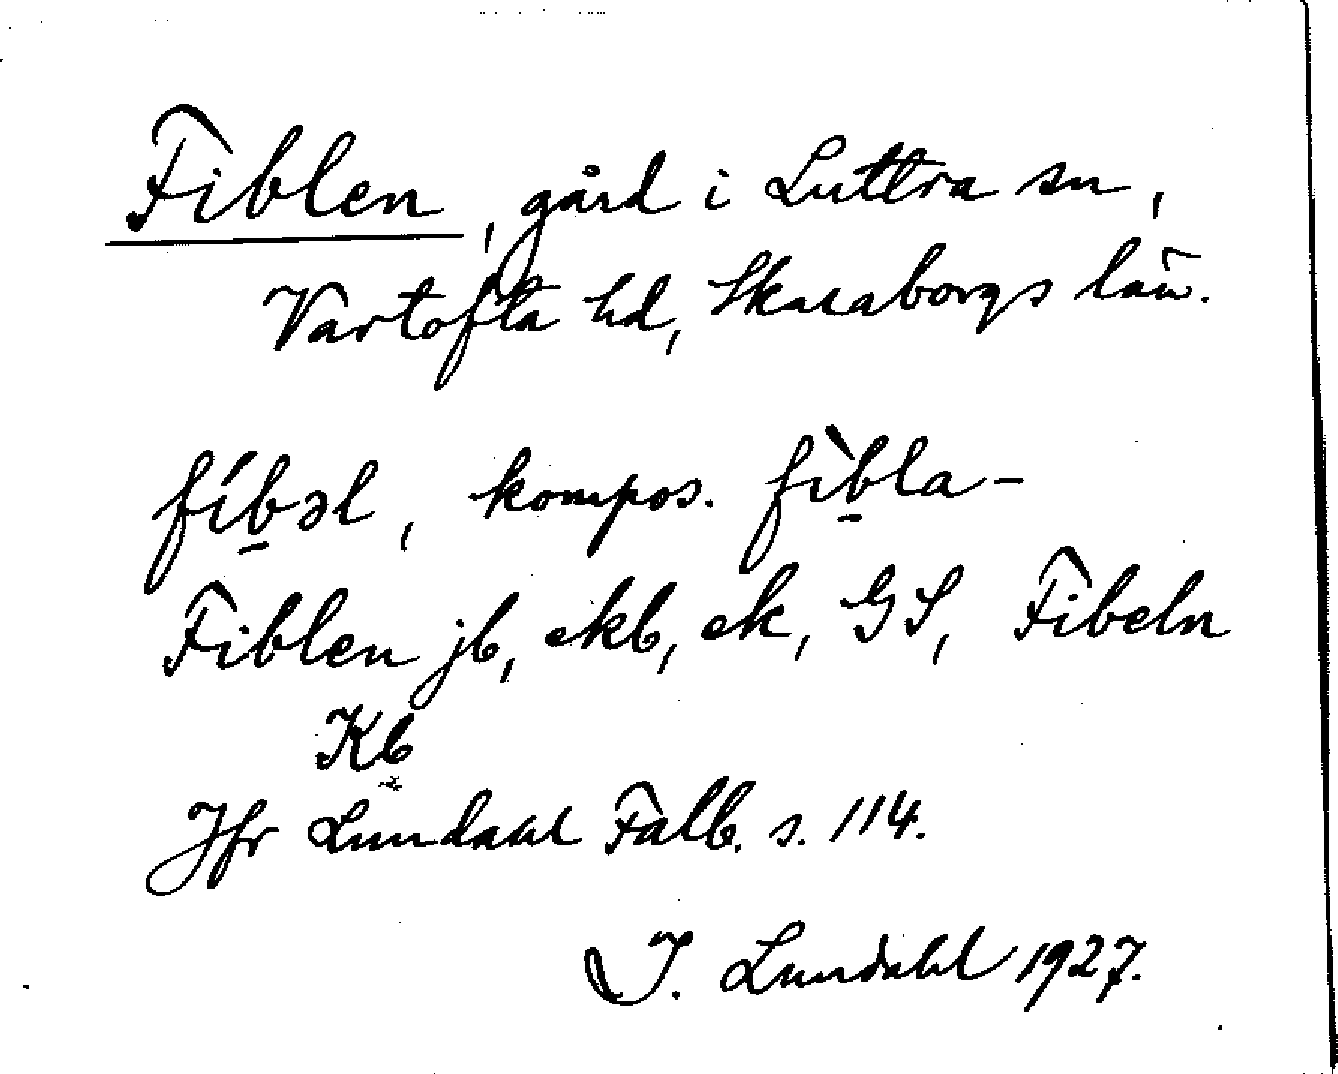 Fiblen, gård i Luttra sn,
Vartofta hd, Skaraborgs län.
fíb̲əl, kompos. fìb̲la-
Fiblen jb, ekb, ek, GS, Fibeln
Kb
Jfr Lundahl Falb. s. 114.
I. Lundahl 1927.